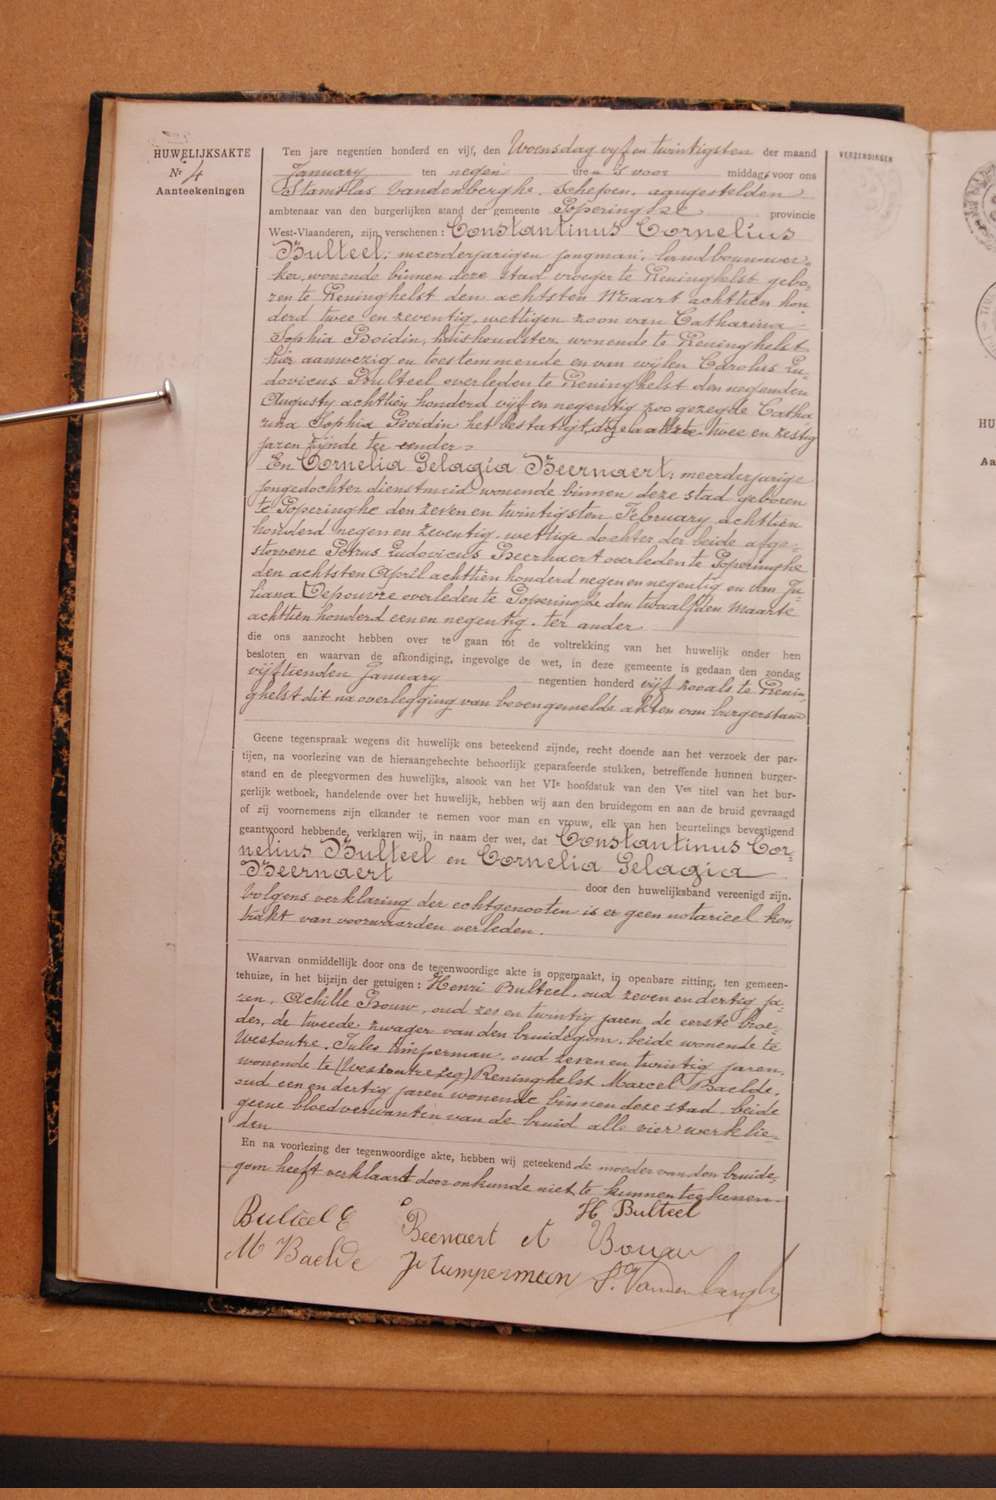 HUWELIJKSAKTE
Nr 4
Aanteekeningen
VERZENDINGEN
Ten jare negentien honderd en vijf, den Woensdag vijf en twintigsten der maand
January ten negen ure voor middag, voor ons
Stanislas Vandenberghe, Schepen, aangestelden
ambtenaar van den burgerlijken stand der gemeente Poperinghe provincie
West-Vlaanderen, zijn verschenen : Constantinus Cornelius
Bulteel, meerderjarigen jongman, landbouwwer-
ker, wonende binnen deze stad vroeger te Reninghelst gebo-
ren te Reninghelst den achtsten Maart achttien hon
derd twee en zeventig, wettigen zoon van Catharina
Sophia Boidin, huishoudster, wonende te Reninghelst
hier aanwezig en toestemmende en van wijlen Carolus Lu-
dovicus Bulteel overleden te Reninghelst den negenden
Augusty achttien honderd vijf en negentig zoo gezegde Catha
rina Sophia Boidin het bestatigt, deze laatste twee en zestig
jaren zijnde ter eender =
En Cornelia Pelagia Beernaert, meerderjarige
jongedochter dienstmeid wonende binnen deze stad geboren
te Poperinghe den zeven en twintigsten February achttien
honderd negen en zeventig, wettige dochter der beide afge-
storvene Petrus Ludovicus Beernaert overleden te Poperinghe
den achtsten April achttien honderd negen en negentig en van Ju-
liana Depouvre overleden te Poperinghe den twaalfden Maarte
achttien honderd een en negentig. ter ander
die ons aanzocht hebben over te gaan tot de voltrekking van het huwelijk onder hen
besloten en waarvan de afkondiging, ingevolge de wet, in deze gemeente is gedaan den zondag
vijftienden January negentien honderd vijf zooals te Renin-
ghelst dit na overlegging van bovengemelde akten van burgerstand
Geene tegenspraak wegens dit huwelijk ons beteekend zijnde, recht doende aan het verzoek der par-
tijen, na voorlezing van de hieraangehechte behoorlijk geparafeerde stukken, betreffende hunnen burger-
stand en de pleegvormen des huwelijks, alsook van het VIe hoofdstuk van den Ven titel van het bur-
gerlijk wetboek, handelende over het huwelijk, hebben wij aan den bruidegom en aan de bruid gevraagd
of zij voornemens zijn elkander te nemen voor man en vrouw, elk van hen beurtelings bevestigend
geantwoord hebbende, verklaren wij, in naam der wet, dat Constantinus Cor-
nelius Bulteel en Cornelia Pelagia
Beernaert door den huwelijksband vereenigd zijn.
Volgens verklaring der echtgenooten is er geen notarieel kon
trakt van voorwaarden verleden.
Waarvan onmiddellijk door ons de tegenwoordige akte is opgemaakt, in openbare zitting, ten gemeen-
tehuize, in het bijzijn der getuigen : Henri Bulteel, oud zeven en dertig ja-
ren, Achille Bouw, oud zes en twintig jaren, de eerste broe-
der, de tweede zwager van den bruidegom, beide wonende te
Westoutre, Jules Timperman, oud zeven en twintig jaren,
wonende te (Westoutre zeg) Reninghelst Marcel Baelde,
oud een en dertig jaren wonende binnen deze stad beide
geene bloedverwanten van de bruid alle vier werklie-
den
En na voorlezing der tegenwoordige akte, hebben wij geteekend de moeder van den bruide-
gom heeft verklaart door onkunde niet te kunnen teekenen
Bulteel C Beernaert C H Bulteel
M Baelde J Timperman A Bouw
S. Vandenberghe